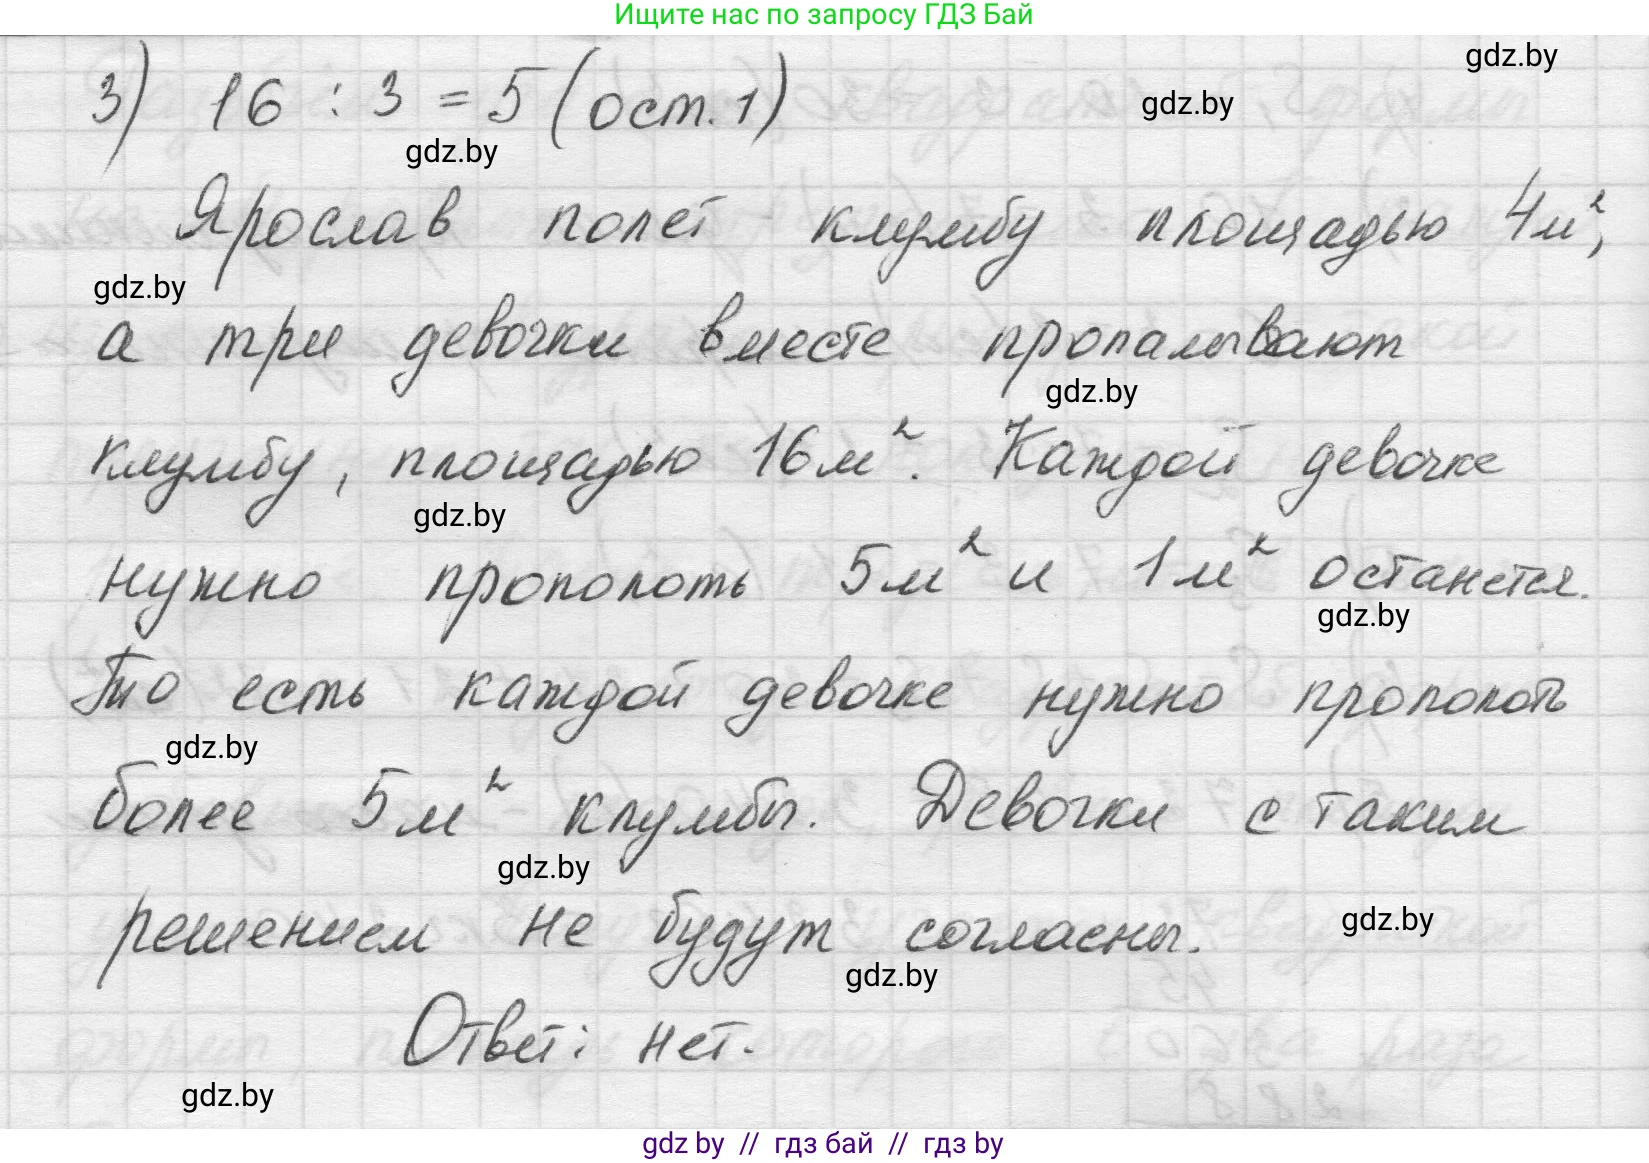 Ищите нас по запросу ГДЗ Бай
gdz.by
3) 16 : 3 = 5 (ост. 1)
gdz.by
gdz.by
Ярослав полет клумбу площадью 4м²,
gdz.by
а три девочки вместе пропалывают
gdz.by
клумбу, площадью 16м². Каждой девочке
gdz.by
нужно прополоть 5м² и 1м² останется.
gdz.by
То есть каждой девочке нужно прополоть
gdz.by
более 5м² клумбы. Девочки с таким
gdz.by
решением не будут согласны.
gdz.by
gdz.by
Ответ: нет.
gdz.by
gdz by // гдз бай // гдз by